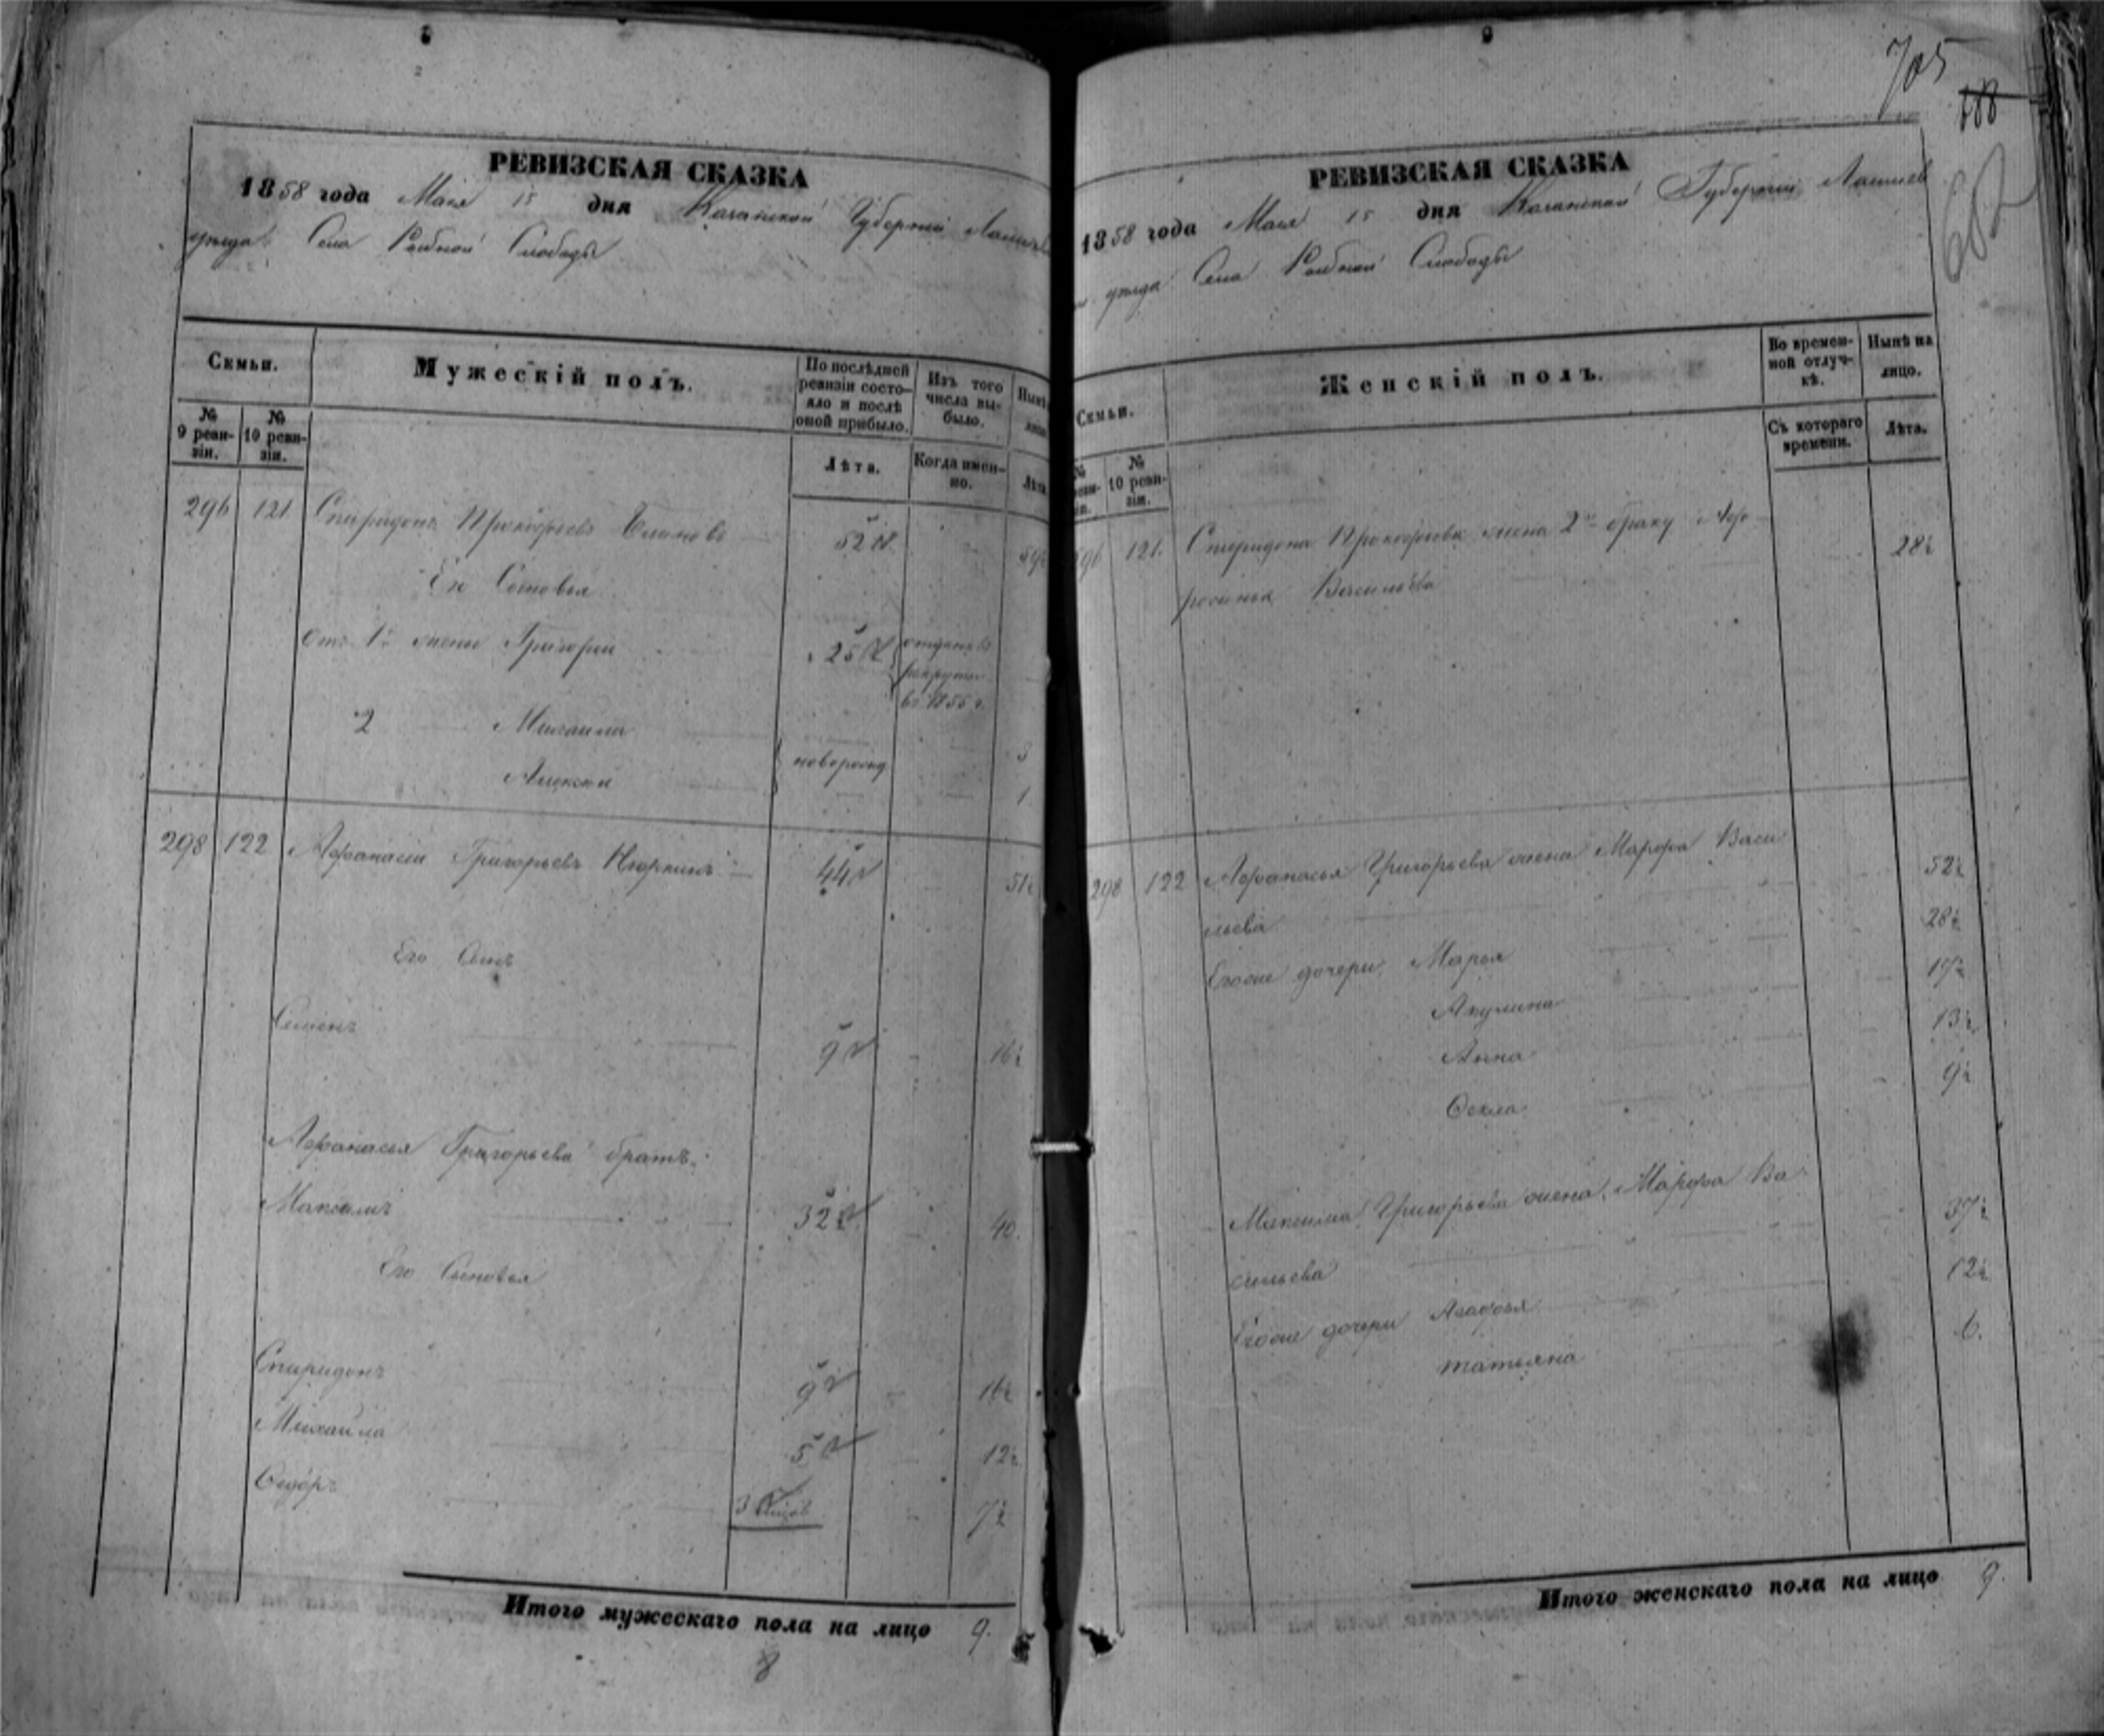 705
188
602
РЕВИЗСКАЯ СКАЗКА
1858 года Мая 15 дня Казанской Губерніи Лаишев
уѣзда Села Рыбной Слободы
Семьи.
Мужескій полъ.
По послѣдней ревизіи состояло и послѣ оной прибыло.
Изъ того числа выбыло.
Нынѣ
№ 9 ревизіи.
№ 10 ревизіи.
Лѣта.
Когда именно.
Лѣта
296 121 Спиридонъ Прокофьевъ 52 59
Его Сыновья
отъ 1й жены Григорій 25 отданъ въ
рекруты
въ 1855 г.
2 Михаила 3
новорожд
Алексей 1
298 122 Афанасій Григорьевъ 44 51
Его Сынъ
Семенъ 9 16
Афанасья Григорьева братъ
Максимъ 32 40
Его Сыновья
Спиридонъ 9 16
Михаила 5 12
Ѳедоръ 3 7
Итого мужескаго пола на лицо 9.
8
РЕВИЗСКАЯ СКАЗКА
1858 года Мая 15 дня Казанской Губерніи Лаишев
уѣзда Села Рыбной Слободы
Семьи.
Женскій полъ.
Во временной отлучкѣ.
Нынѣ на лицо.
№ 10 ревизіи.
Съ котораго времени.
Лѣта.
296 121. Спиридона Прокофьева жена 2го браку Афро 28
Васильева
298 122 Афанасья Григорьева жена Марфа Васи 52
льева
Егоже дочери Марья 28
Акулина 17
Анна 13
Ѳекла 9
Максима Григорьева жена Марфа Ва 37
сильева
Егоже дочери Агафья 12
Татьяна 6.
Итого женскаго пола на лицо 9.